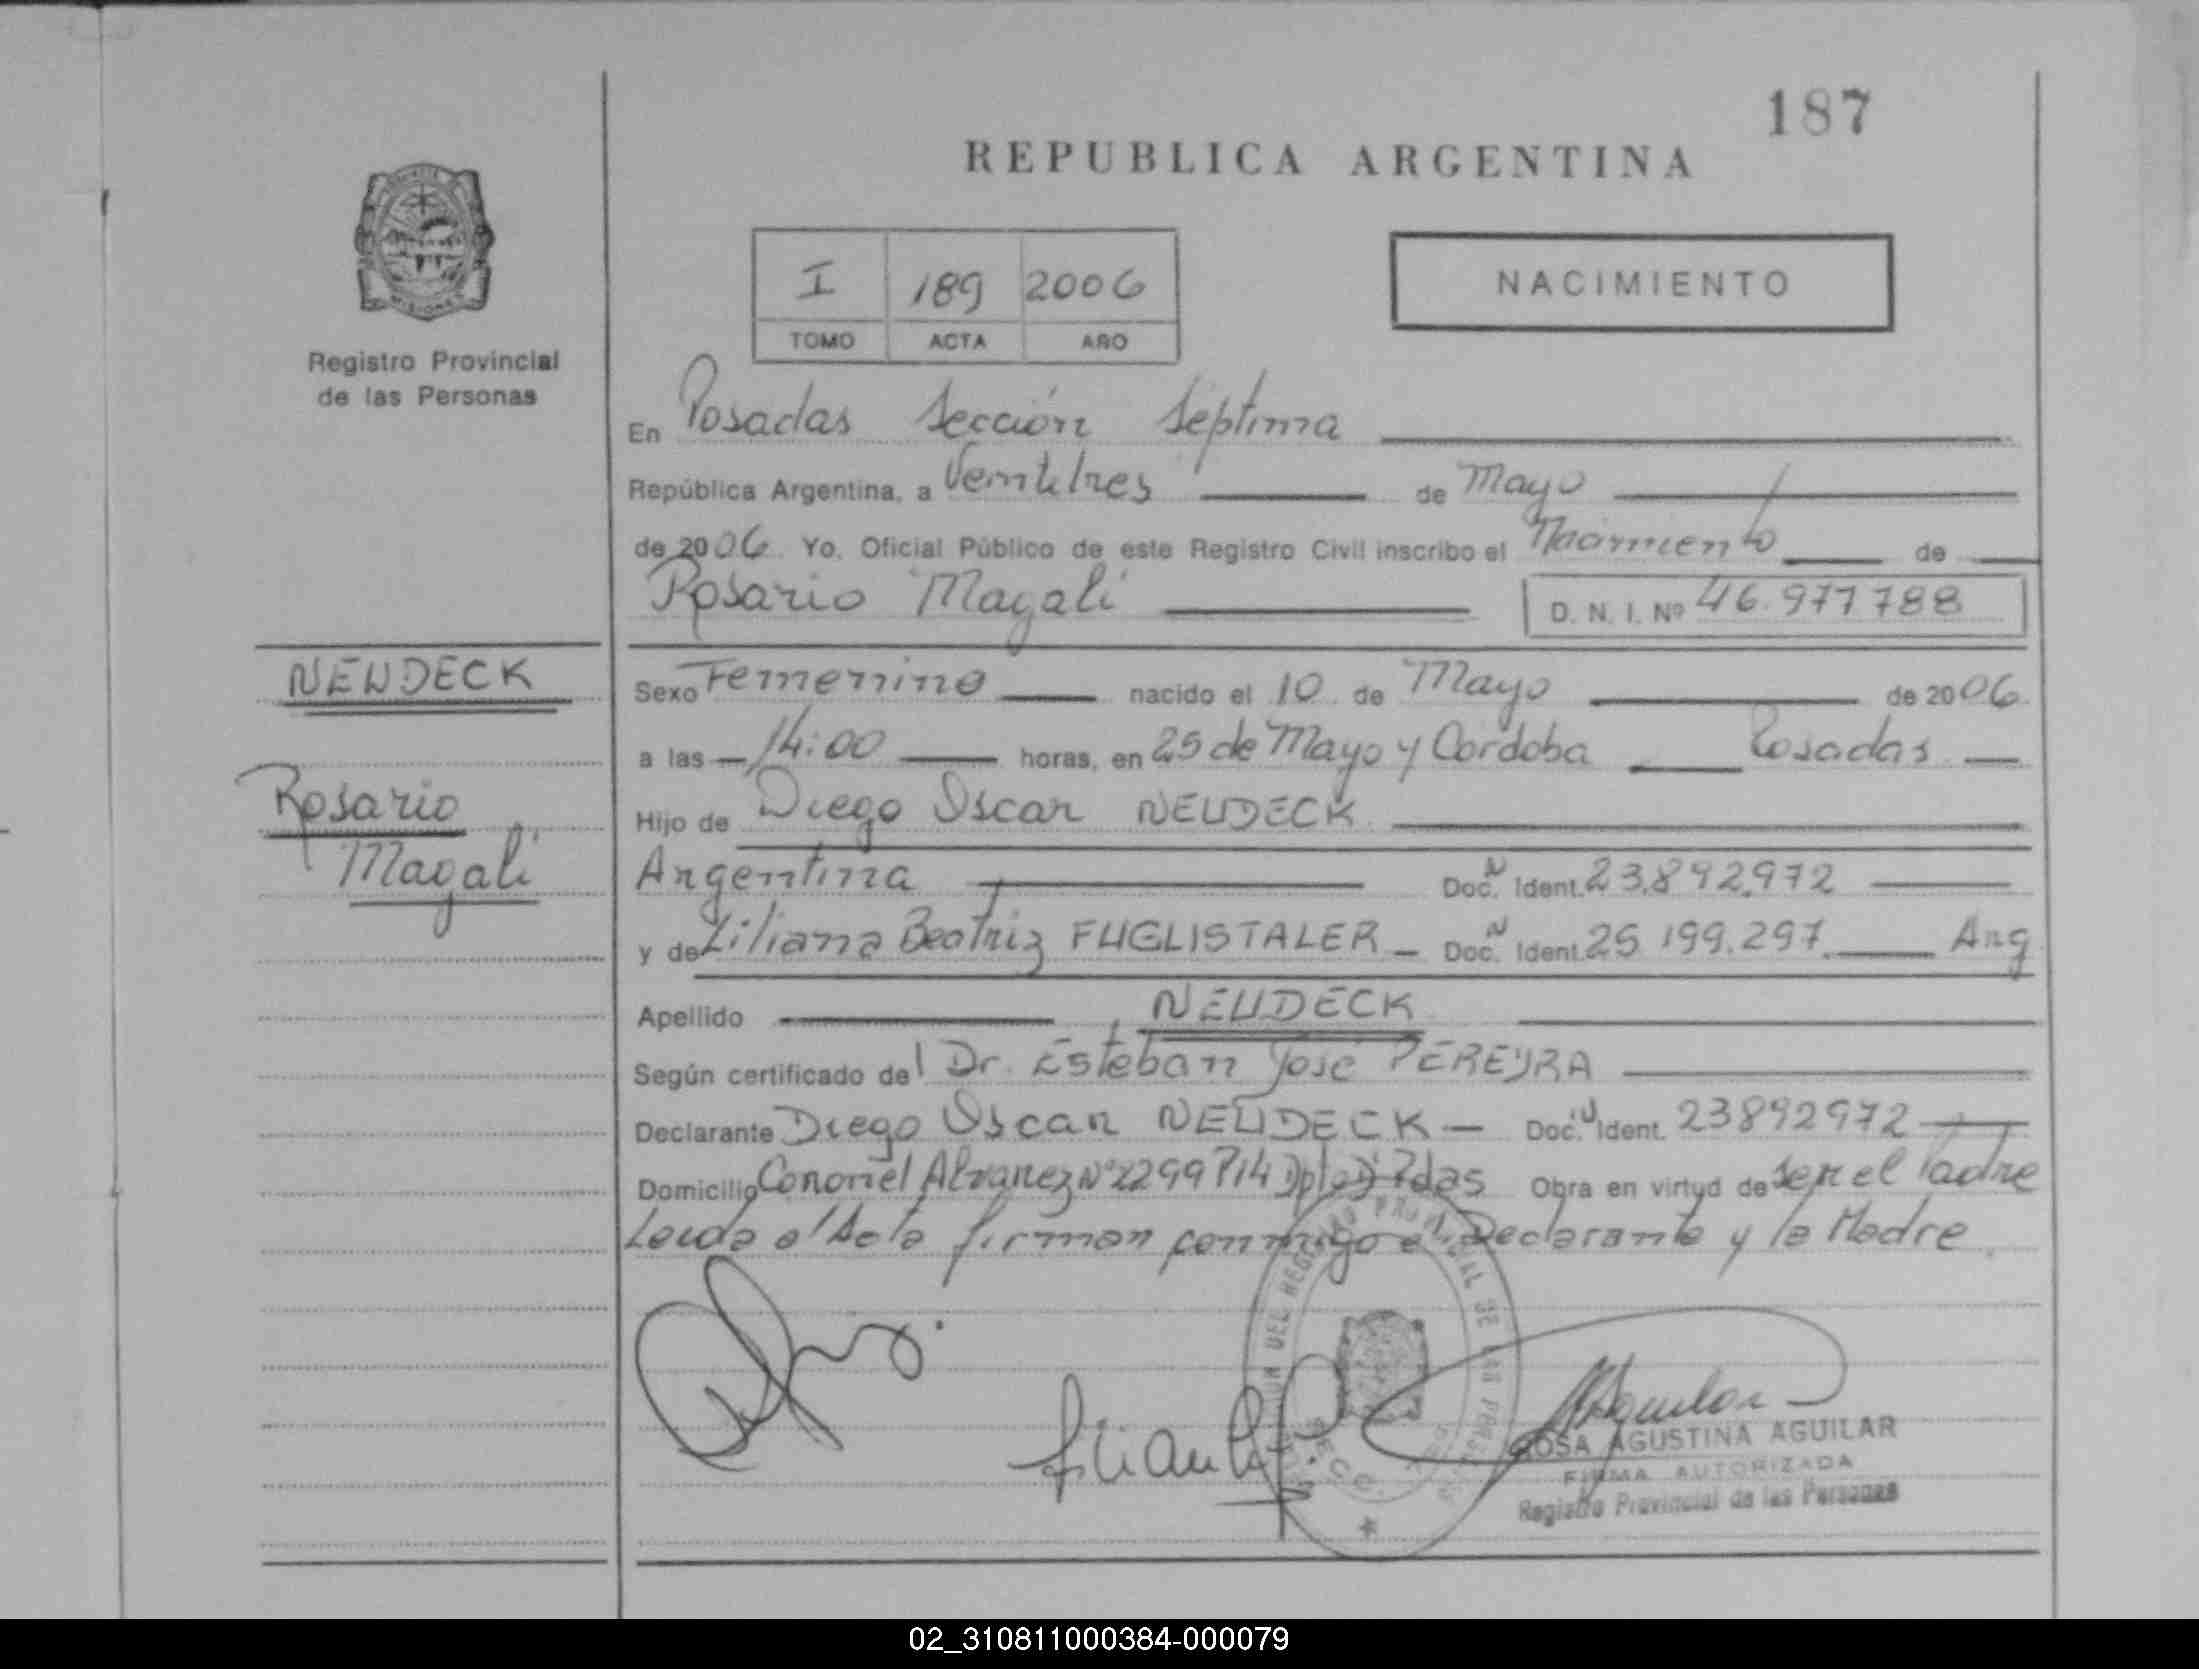 187
REPUBLICA ARGENTINA
I 189 2006
TOMO ACTA AÑO
NACIMIENTO
Registro Provincial
de las Personas
En Posadas Sección Séptima
República Argentina, a Veintitres de Mayo
de 2006 Yo, Oficial Público de este Registro Civil inscribo el Nacimiento de
Rosario Magali D. N. I. Nº 46.977788
NEUDECK
Rosario
Magali
Sexo Femenino nacido el 10 de Mayo de 2006
a las 14:00 horas, en 25 de Mayo y Cordoba Posadas
Hijo de Diego Oscar NEUDECK
Argentina Doc. N Ident. 23.892.972
y de Liliana Beatriz FUGLISTALER Doc. N Ident. 25.199.297. Arg
Apellido NEUDECK
Según certificado del Dr. Esteban José PEREYRA
Declarante Diego Oscar NEUDECK Doc. N Ident. 23892972
Domicilio Coronel Alvarez Nº 2299 P14 Dpto D Pdas Obra en virtud de ser el Padre
Leida el Acta firman conmigo el Declarante y la Madre.
ROSA AGUSTINA AGUILAR
FIRMA AUTORIZADA
Registro Provincial de las Personas
02_310811000384-000079